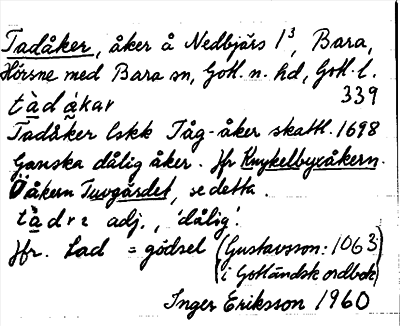 Tadåker, åker å Nedbjärs 1³, Bara,
Hörsne med Bara sn, Gotl. n. hd, Gotl. l.
tàdákar 339
Tadåker lskk Tåg-åker skattl. 1698
Ganska dålig åker. Jfr Knykelbyxåkern.
Öåkern Tuvgårdet, se detta.
tàdrɩ adj., 'dålig'.
Jfr. tad = gödsel (Gustavsson: 1063
i Gotländsk ordbok)
Inger Eriksson 1960